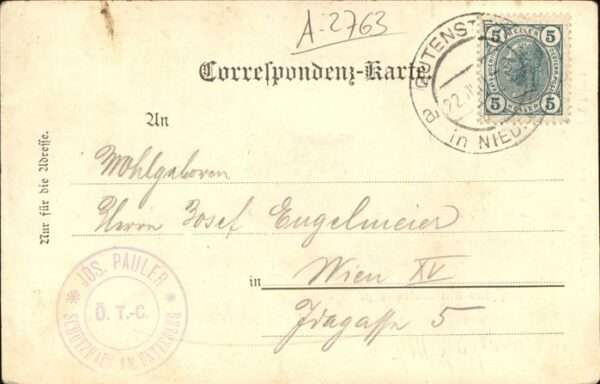 A-2763
Correspondenz-Karte.
5 5
5 5
GUTENST
22.
in NIED.
An
Nur für die Adresse.
Wohlgeboren
Herrn Josef Engelmeier
in Wien XV
Zdagasse 5
JOS. PAULER
Ö. T.-C.
SCHUTZHAUS AM UNTERBERG